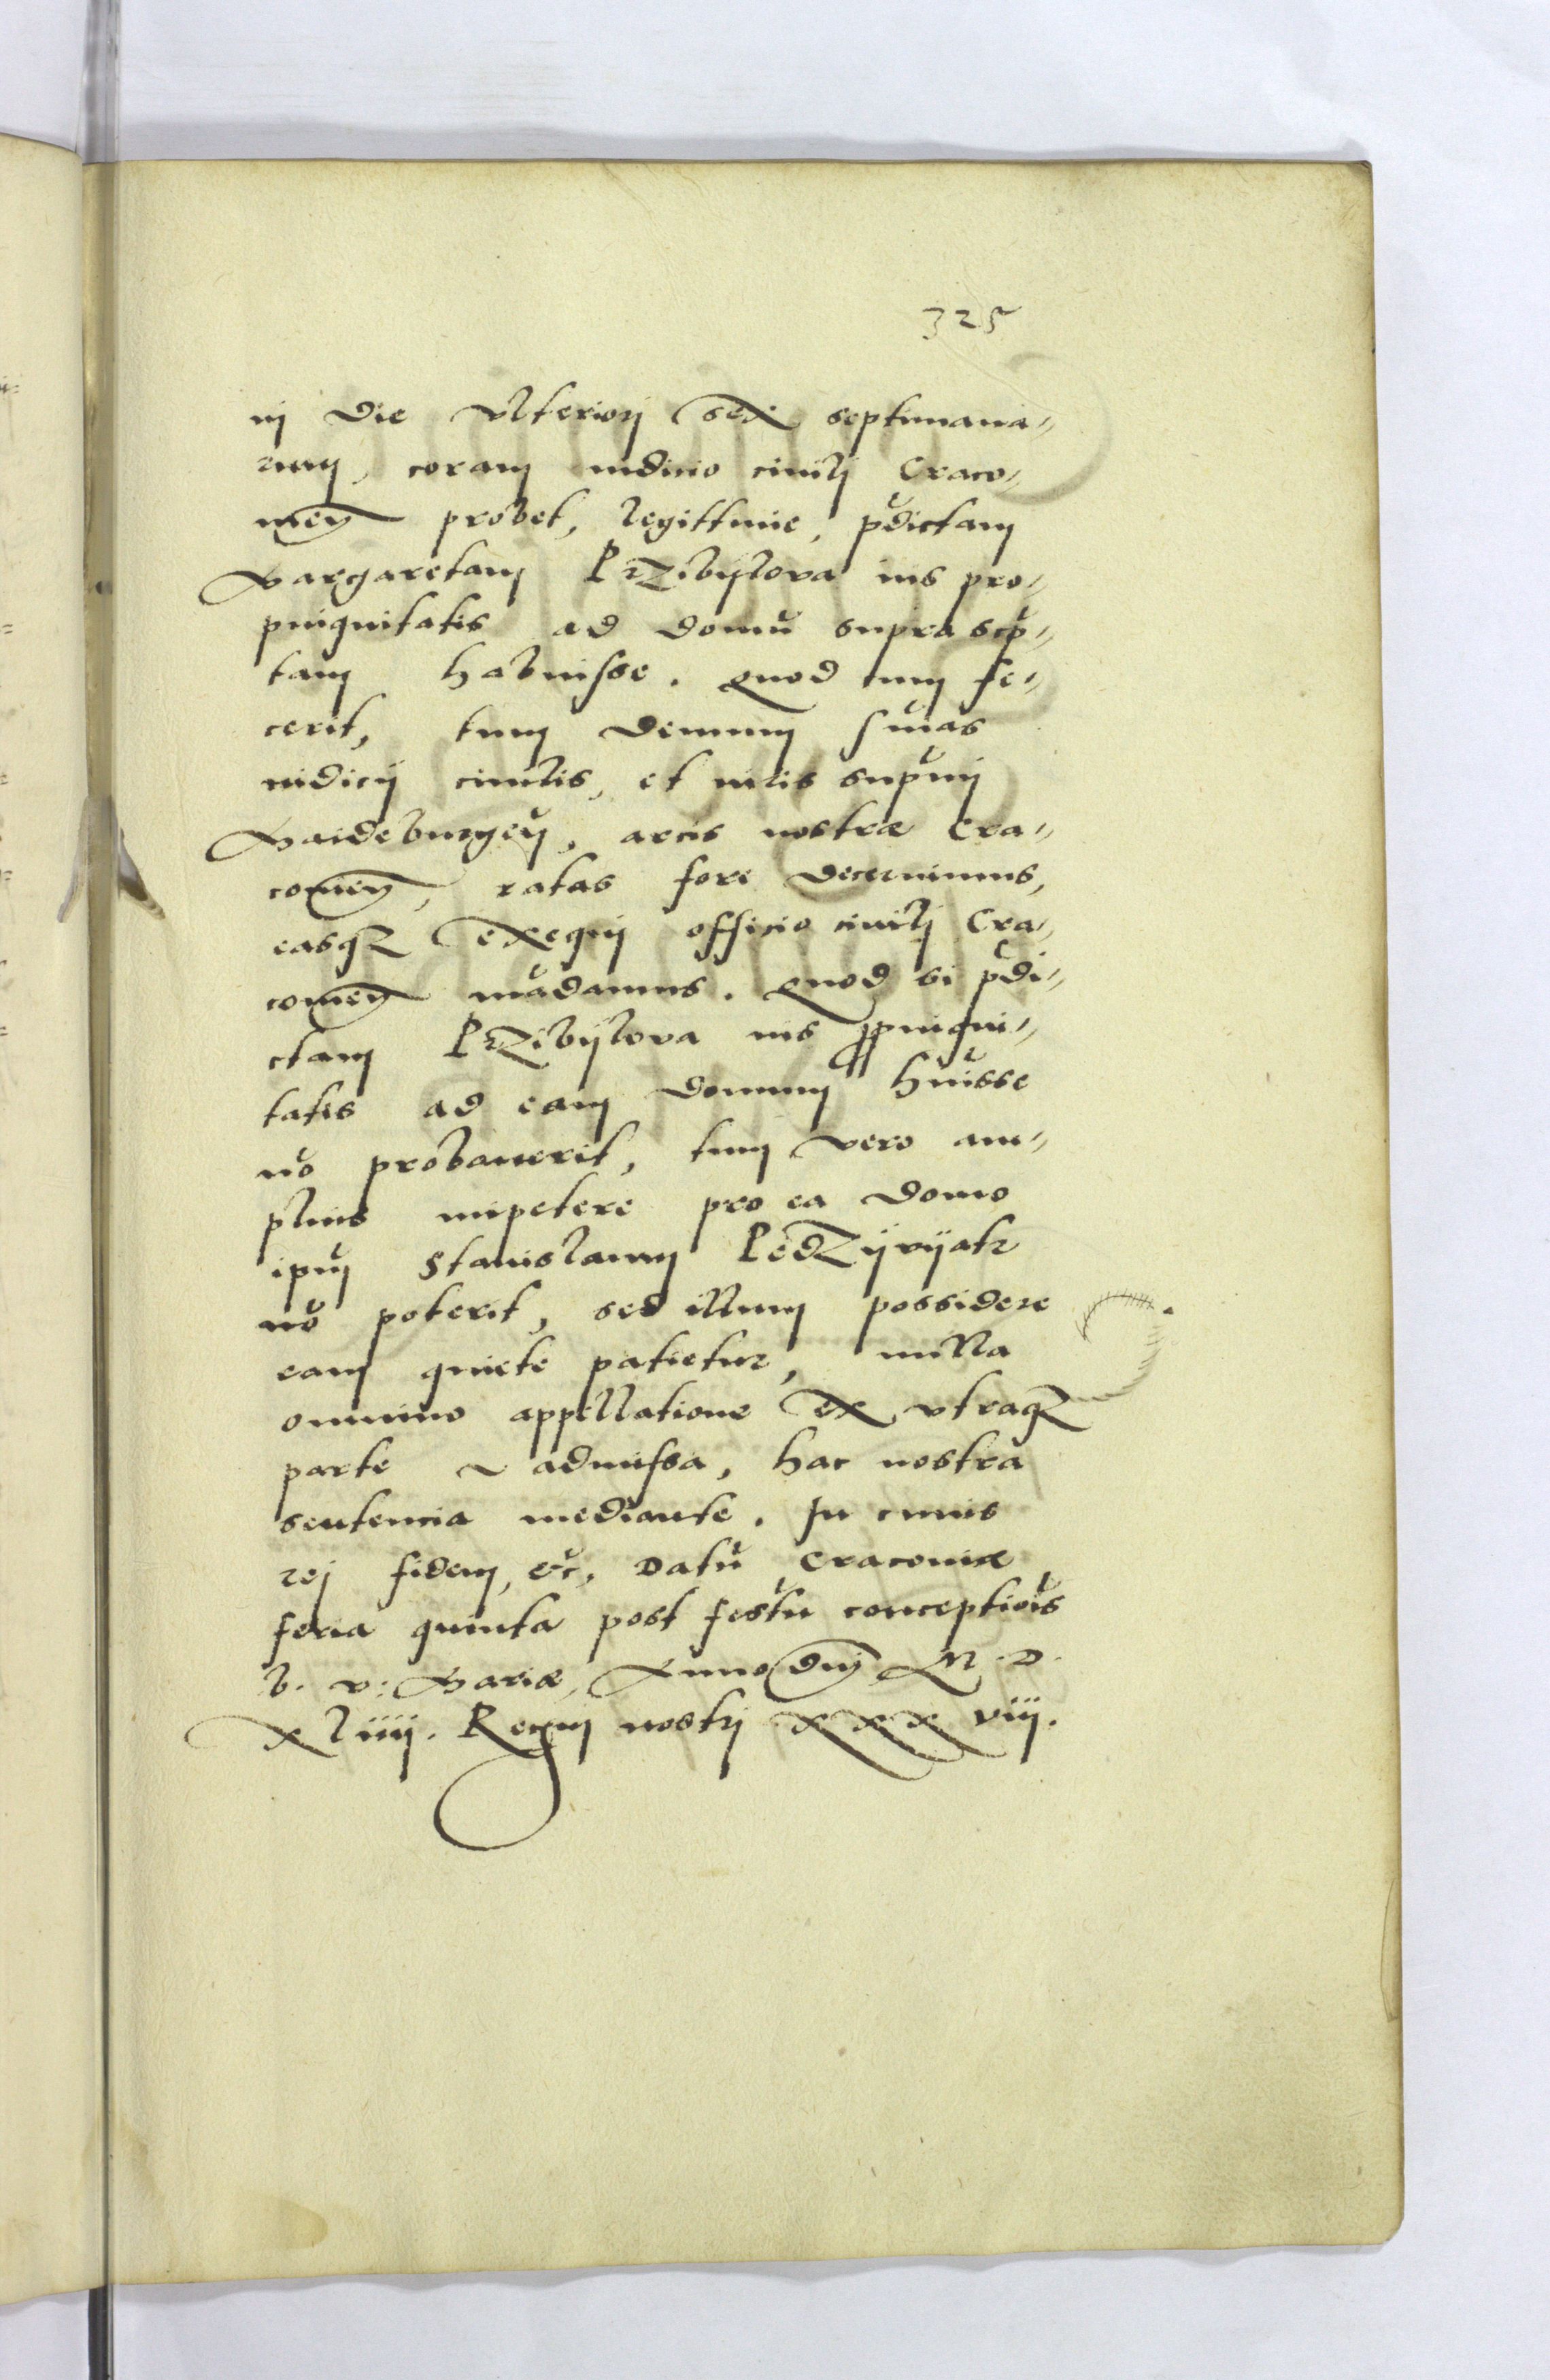 325
in die ulteriori sex septimana„
rum, coram iudicio civili Craco„
vien probet, legittime, p̆dictam
Margaretam Przibÿlova ius pro„
pinquitatis ad domŭ suprascrp̆„
tam habuisse. Quod cum fe„
cerit, tum demum sn̆ias
iudicij civilis, et iuris supr̆mi
Maideburgen̆, arcis nostræ Cra„
covien, ratas fore decernimus,
easq₃ exequi officio civili Cra„
covien mădamus. Quod si p̆di„
ctam Przibÿlova ius ꝓpinqui„
tatis ad eam domum hŭisse
nŏ probaverit, tum vero am„
plius impetere pro ea domo
ipŭm Stanislaum PĕdZÿvÿatr
nŏ poterit, sed illum possidere
eam quiete patietur, nulla
omnino appellatione ex utraq₃
parte ~ admissa, hac nostra
sentencia mediante. In cuius
rei fidem, &c̆, Datŭ Cracoviæ
feria quinta post festŭ conceptiŏis
b. v: Mariæ, Anno dnĭ M. D.
xliiij. Regni nostri xxxviij.